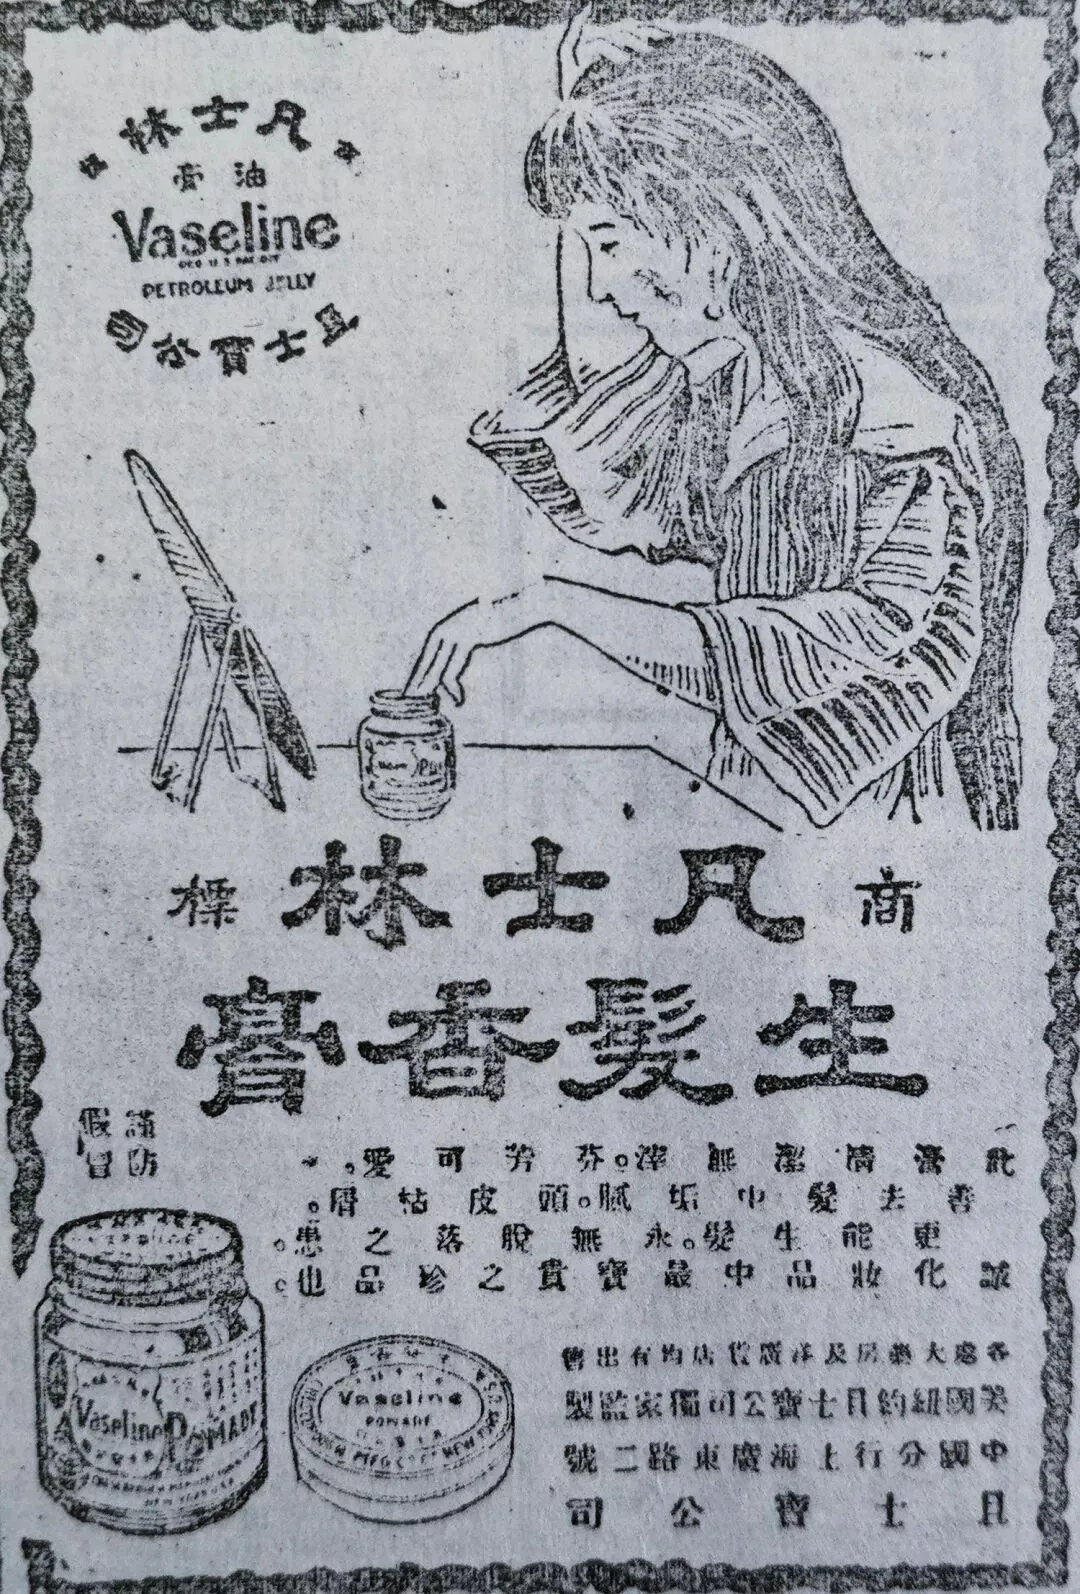 凡士林
油膏
Vaseline
PETROLEUM JELLY
且士寶公司
商 凡士林 標
生髮香膏
謹防
假冒
此膏清潔無滓。芬芳可愛。
善去髮中垢膩。頭皮枯屑。
更能生髮。永無脫落之患。
誠化妝品中最寶貴之珍品也。
各處大藥房及洋廣貨店均有出售
美國紐約且士寶公司獨家監製
中國分行上海廣東路二號
且士寶公司
Vaseline POMADE
Vaseline
POMADE